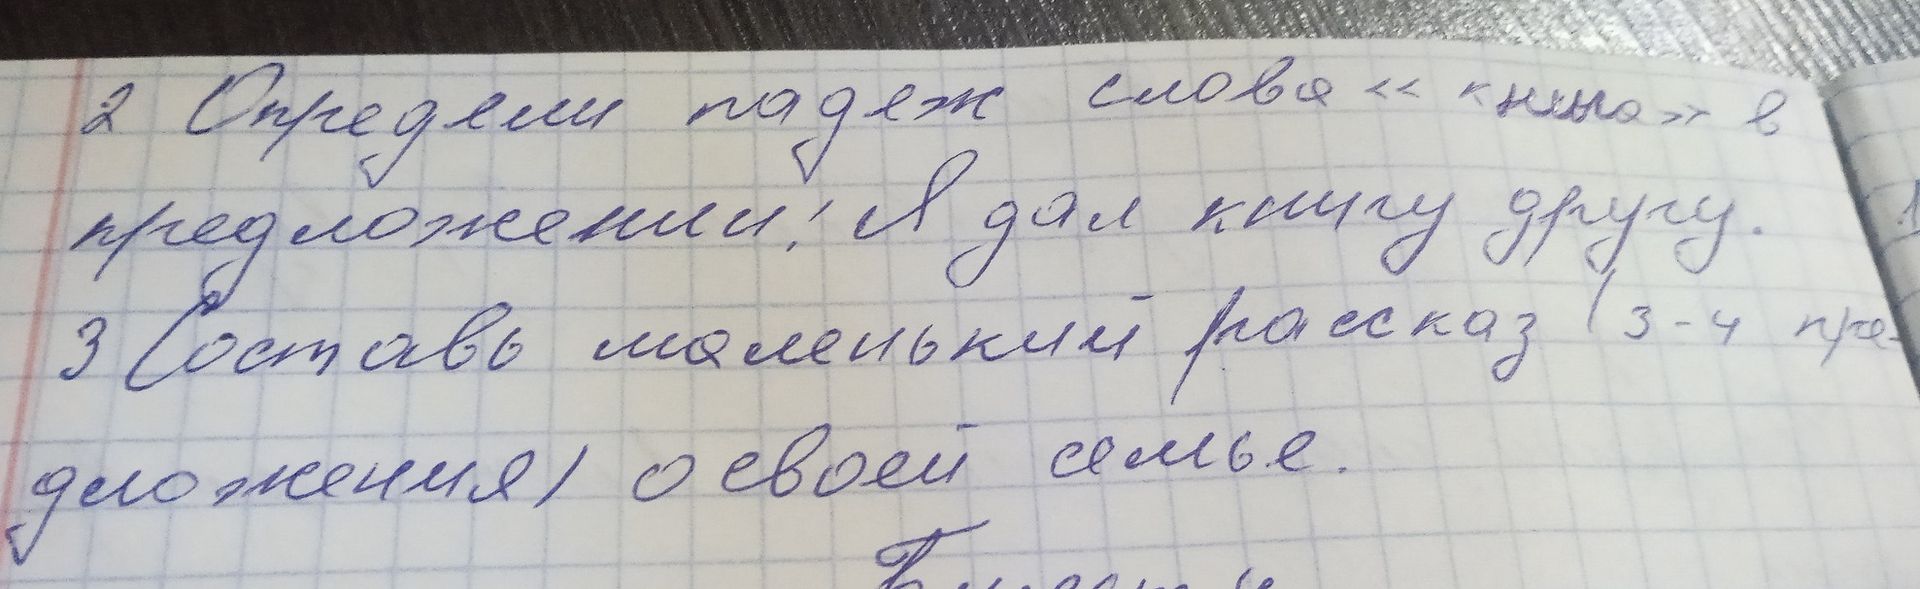 2 Определи падеж слова « книга » в
предложении: Я дал книгу другу.
3 Составь маленький рассказ (3-4 пре-
дложения) о своей семье.